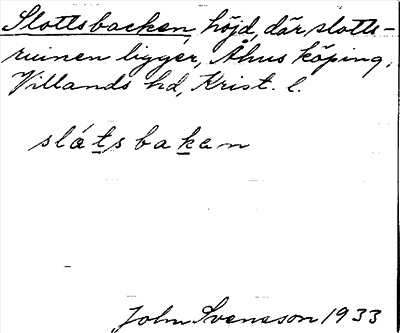 Slottsbacken, höjd, där slotts-
ruinen ligger, Åhus köping,
Villands hd, Krist. l.
slátsbakan
John Svensson 1933